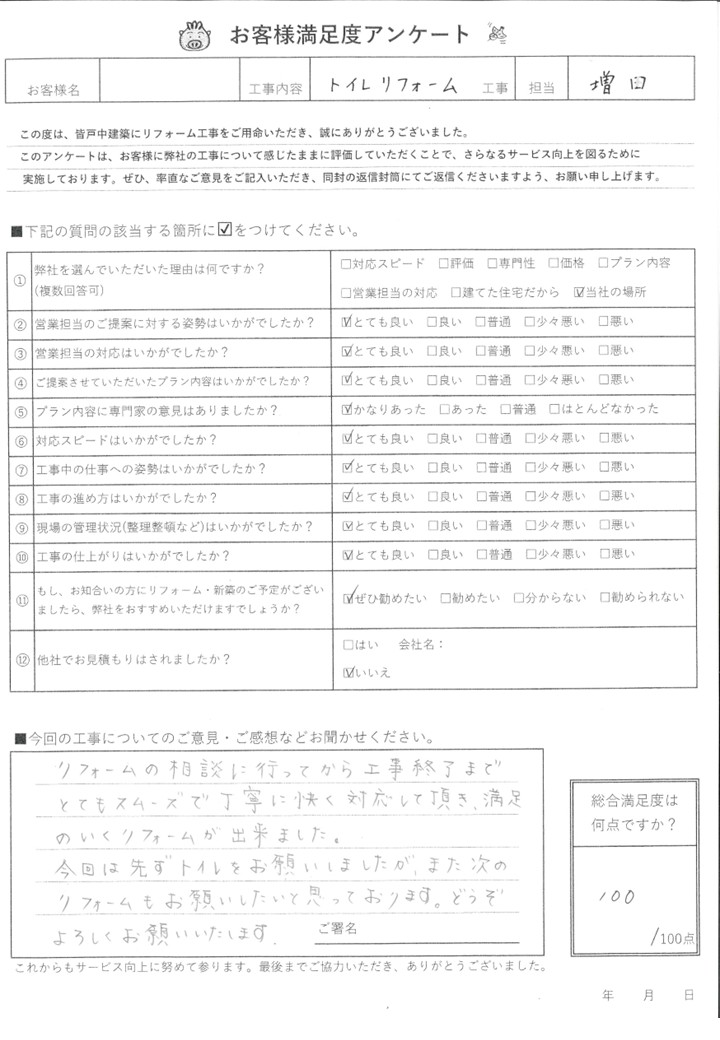 お客様満足度アンケート
お客様名 工事内容 トイレリフォーム 工事 担当 増田
この度は、皆戸中建築にリフォーム工事をご用命いただき、誠にありがとうございました。
このアンケートは、お客様に弊社の工事について感じたままに評価していただくことで、さらなるサービス向上を図るために
実施しております。ぜひ、率直なご意見をご記入いただき、同封の返信封筒にてご返信くださいますよう、お願い申し上げます。
■下記の質問の該当する箇所に☑をつけてください。
① 弊社を選んでいただいた理由は何ですか?
(複数回答可)
□対応スピード □評価 □専門性 □価格 □プラン内容
□営業担当の対応 □建てた住宅だから ☑当社の場所
② 営業担当のご提案に対する姿勢はいかがでしたか? ☑とても良い □良い □普通 □少々悪い □悪い
③ 営業担当の対応はいかがでしたか? ☑とても良い □良い □普通 □少々悪い □悪い
④ ご提案させていただいたプラン内容はいかがでしたか? ☑とても良い □良い □普通 □少々悪い □悪い
⑤ プラン内容に専門家の意見はありましたか? ☑かなりあった □あった □普通 □ほとんどなかった
⑥ 対応スピードはいかがでしたか? ☑とても良い □良い □普通 □少々悪い □悪い
⑦ 工事中の仕事への姿勢はいかがでしたか? ☑とても良い □良い □普通 □少々悪い □悪い
⑧ 工事の進め方はいかがでしたか? ☑とても良い □良い □普通 □少々悪い □悪い
⑨ 現場の管理状況(整理整頓など)はいかがでしたか? ☑とても良い □良い □普通 □少々悪い □悪い
⑩ 工事の仕上がりはいかがでしたか? ☑とても良い □良い □普通 □少々悪い □悪い
⑪ もし、お知合いの方にリフォーム・新築のご予定がござい
ましたら、弊社をおすすめいただけますでしょうか?
☑ぜひ勧めたい □勧めたい □分からない □勧められない
⑫ 他社でお見積もりはされましたか?
□はい 会社名:
☑いいえ
■今回の工事についてのご意見・ご感想などお聞かせください。
リフォームの相談に行ってから工事終了まで
とてもスムーズで丁寧に快く対応して頂き、満足
のいくリフォームが出来ました。
今回は先ずトイレをお願いしましたが、また次の
リフォームもお願いしたいと思っております。どうぞ
よろしくお願いいたします。
ご署名
総合満足度は
何点ですか?
100
/100点
これからもサービス向上に努めて参ります。最後までご協力いただき、ありがとうございました。
年 月 日